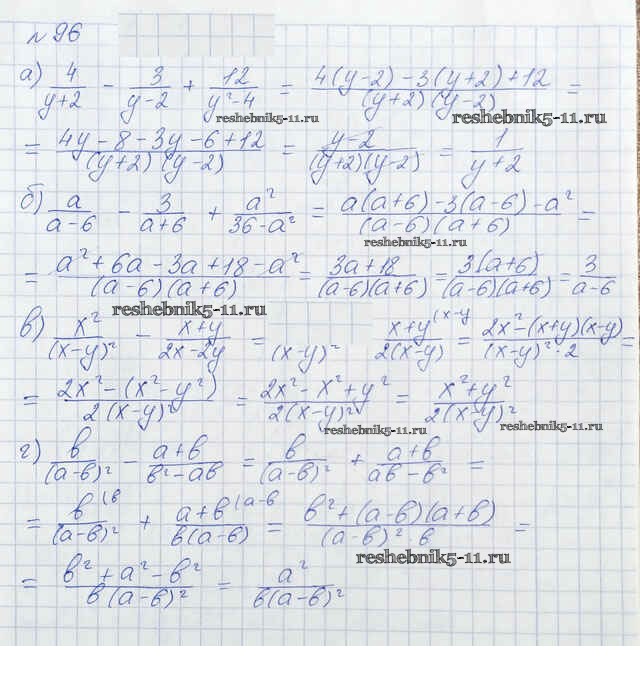 №96
а) 4/(y+2) - 3/(y-2) + 12/(y²-4) = (4(y-2)-3(y+2)+12)/((y+2)(y-2)) =
reshebnik5-11.ru reshebnik5-11.ru
= (4y-8-3y-6+12)/((y+2)(y-2)) = (y-2)/((y+2)(y-2)) = 1/(y+2)
б) a/(a-6) - 3/(a+6) + a²/(36-a²) = (a(a+6)-3(a-6)-a²)/((a-6)(a+6)) =
reshebnik5-11.ru
= (a²+6a-3a+18-a²)/((a-6)(a+6)) = (3a+18)/((a-6)(a+6)) = (3(a+6))/((a-6)(a+6)) = 3/(a-6)
reshebnik5-11.ru
в) x²/(x-y)² - (x+y)/(2x-2y) = /(x-y)² (x+y)/(2(x-y)) (x-y = (2x²-(x+y)(x-y))/((x-y)²·2) =
= (2x²-(x²-y²))/(2(x-y)²) = (2x²-x²+y²)/(2(x-y)²) = (x²+y²)/(2(x-y)²)
reshebnik5-11.ru
г) b/(a-b)² - (a+b)/(b²-ab) = b/(a-b)² + (a+b)/(ab-b²) =
= b/(a-b)² (b + (a+b)/(b(a-b)) (a-b = (b²+(a-b)(a+b))/((a-b)²·b) =
reshebnik5-11.ru
= (b²+a²-b²)/(b(a-b)²) = a²/(b(a-b)²)